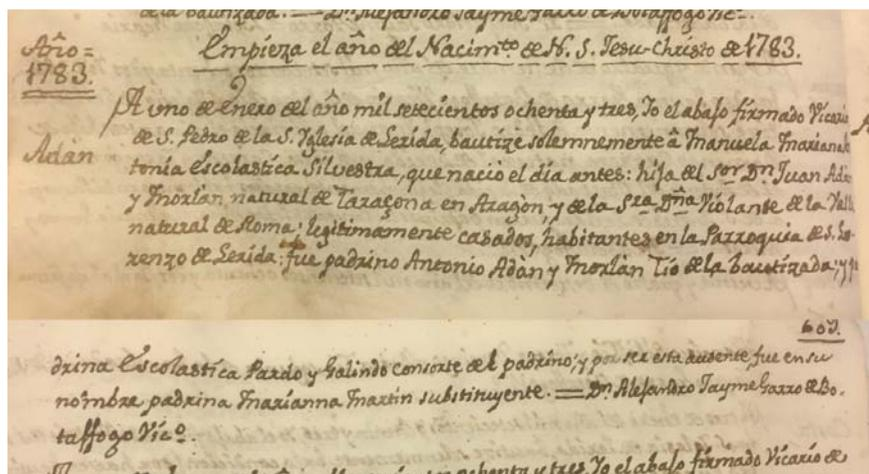 de la bautizada. — Dn. Alejandro Jayme Garro de Botaffogo Vico.
Año =
1783.
Empieza el año del Nacimto. de N. S. Jesu-Christo de 1783.
A uno de Enero del año mil setecientos ochenta y tres, Yo el abajo firmado Vicario
de S. Pedro de la S. Iglesia de Lerida, bautizè solemnemente â Manuela Mariana An
Adàn
tonia Escolastica Silvestra, que naciò el dia antes: hija del Sor. Dn. Juan Adàn
y Morlàn, natural de Tarazona en Aragòn, y de la Sra. Dña. Violante de la Valle
natural de Roma; legitimamente casados, habitantes en la Parroquia de S. Lo-
renzo de Lerida: fue padrino Antonio Adàn y Morlàn Tio de la bautizada; y
607.
drina Escolastica Pardo y Galindo consorte del padrino; y por ser esta ausente, fue en su
nombre padrina Marianna Martin substituyente. = Dn. Alejandro Jayme Garro de Bo-
taffogo Vico.
ochenta y tres, Yo el abajo firmado Vicario de